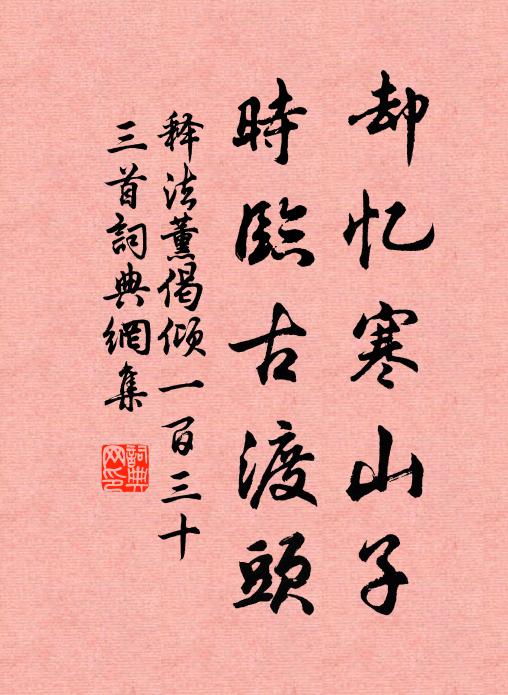 却忆寒山子
時臨古渡頭
释法薰偈倾一百三十
三首詞典網集
詞典网印